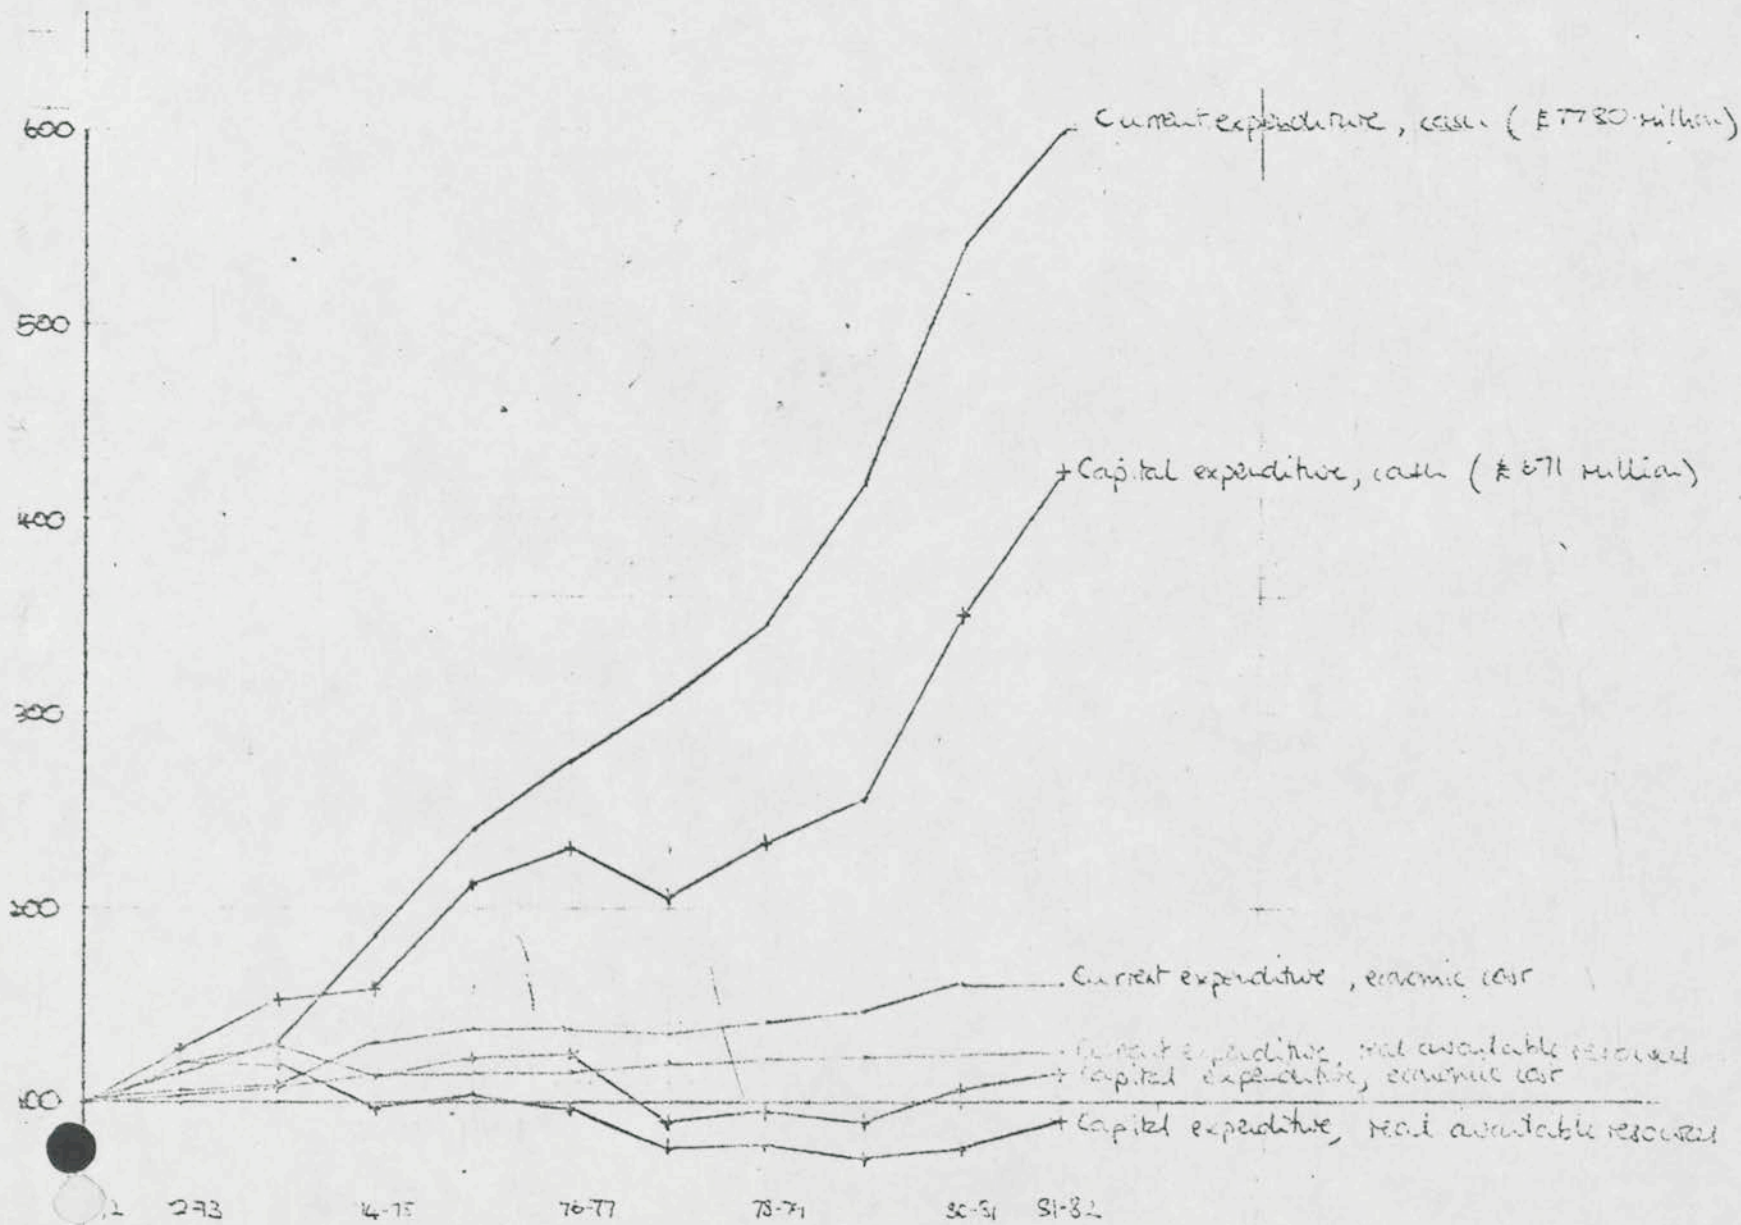 600
Current expenditure, cash (£7780 million)
500
Capital expenditure, cash (£ 671 million)
400
300
200
Current expenditure, economic cost
Current expenditure, real available resources
Capital expenditure, economic cost
100
Capital expenditure, real available resources
2-73 74-75 76-77 78-79 80-81 81-82